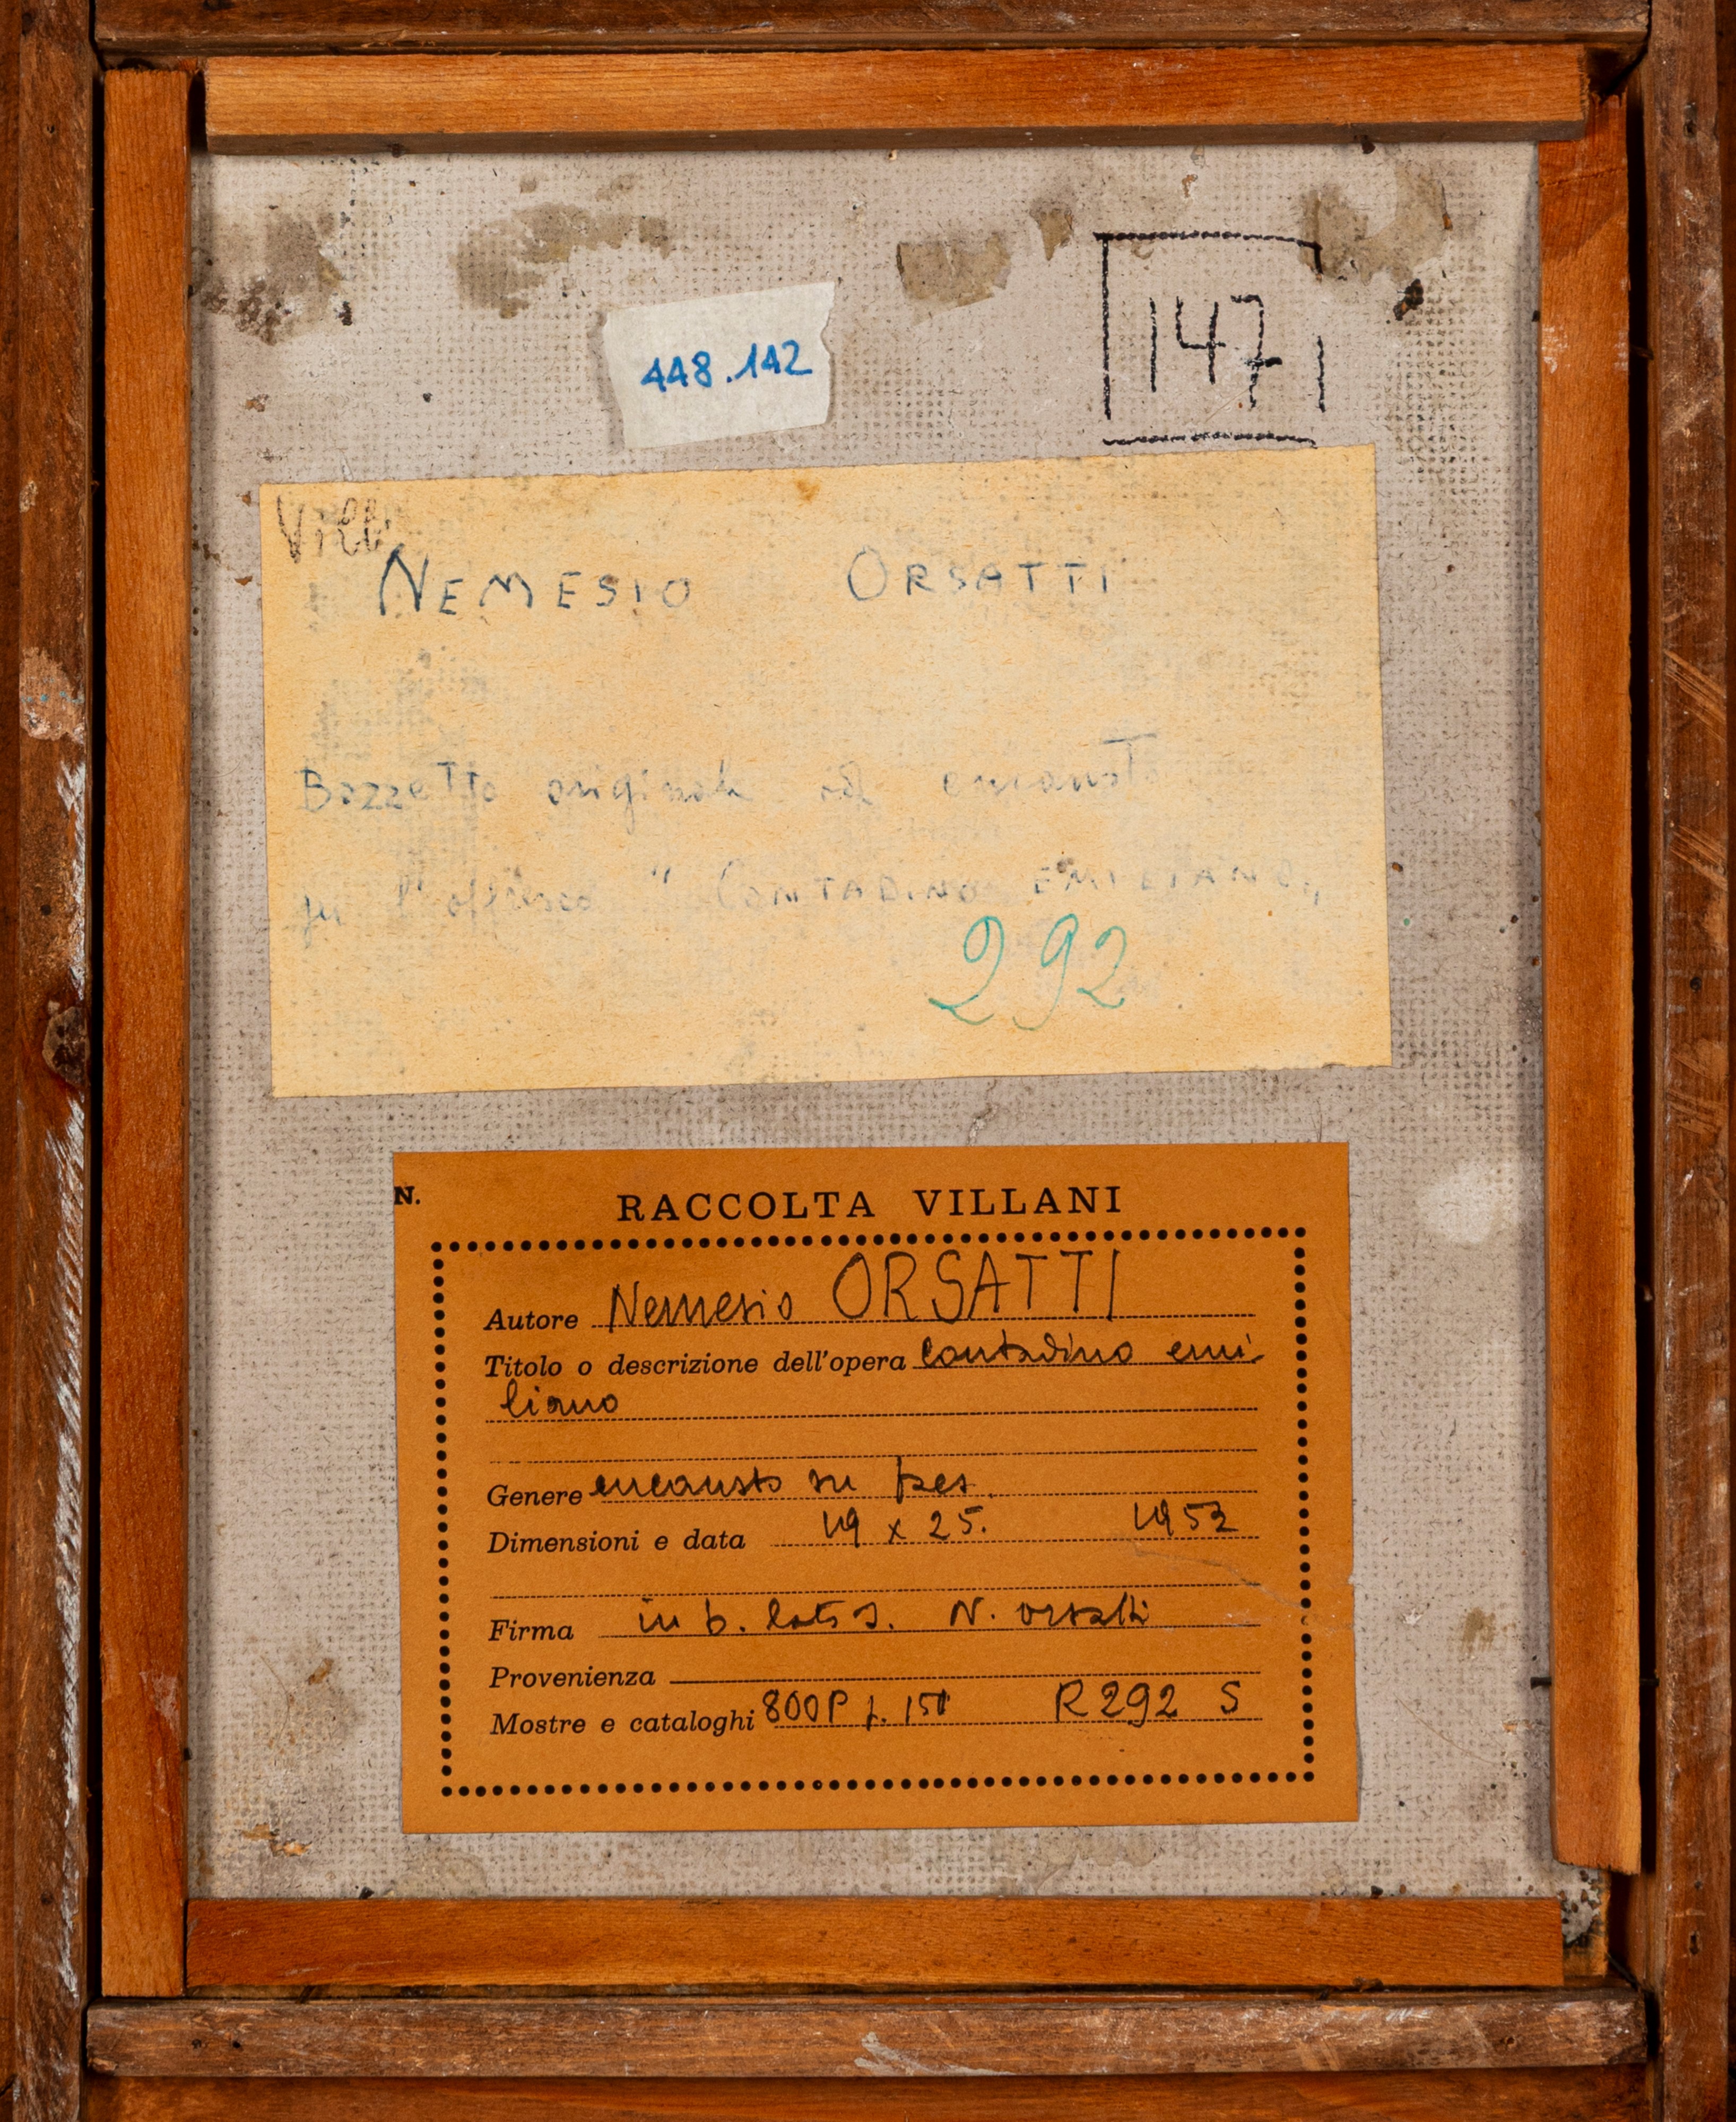 448.142
147
Vill
NEMESIO ORSATTI
Bozzetto originale ad encausto
per l'affresco "CONTADINO EMILIANO„
292
N.
RACCOLTA VILLANI
Autore Nemesio ORSATTI
Titolo o descrizione dell'opera contadino emi-
liano
Genere encausto su
Dimensioni e data 19 x 25. 1952
Firma in b. N. Orsatti
Provenienza
Mostre e cataloghi 800P f. 151 R292 S